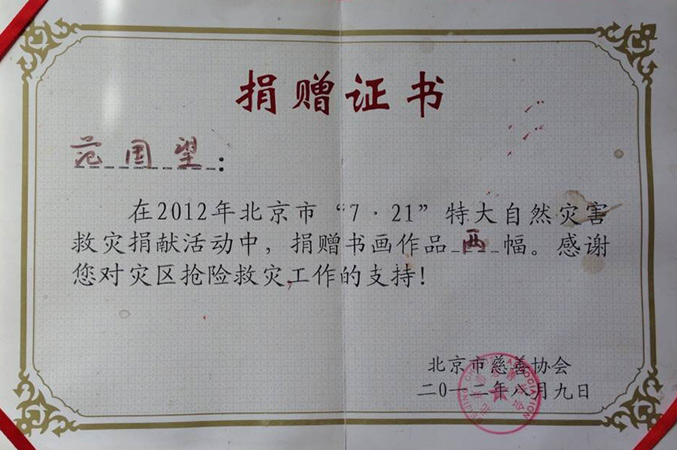 捐赠证书
范国望：
在2012年北京市“7·21”特大自然灾害
救灾捐献活动中，捐赠书画作品两幅。感谢
您对灾区抢险救灾工作的支持!
北京市慈善协会
二0一二年八月九日